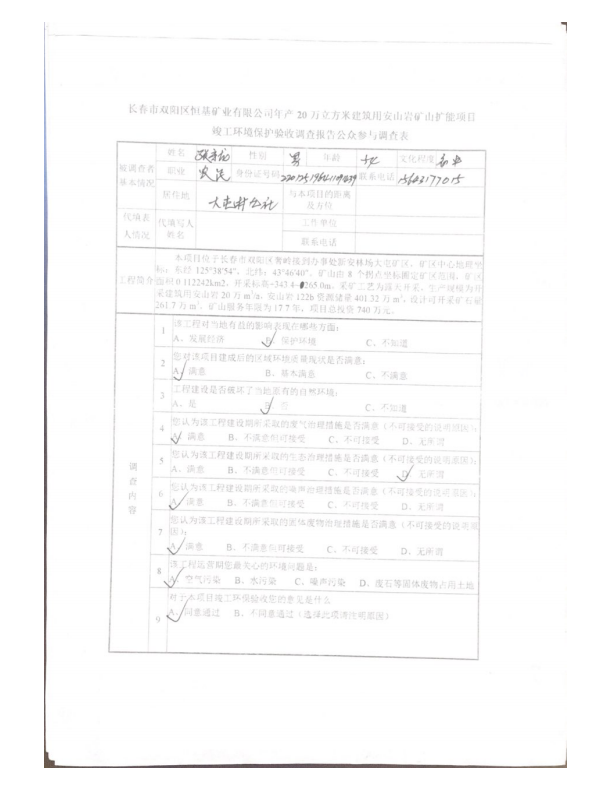 长春市双阳区恒基矿业有限公司年产 20 万立方米建筑用安山岩矿山扩能项目
竣工环境保护验收调查报告公众参与调查表
被调查者基本情况 姓名 性别 男 年龄 文化程度
职业 农民 身份证号码 联系电话
居住地 大屯村 与本项目的距离及方位
代填表人情况 代填写人姓名 工作单位
联系电话
工程简介
本项目位于长春市双阳区奢岭街道办事处新安林场大屯矿区，矿区中心地理坐
标：东经 125°38′54″，北纬：43°46′40″，矿山由 8 个拐点坐标圈定矿区范围，矿区
面积 0.112242km2，开采标高+343.4-+265.0m，采矿工艺为露天开采，生产规模为开
采建筑用安山岩 20 万 m³/a，安山岩 122b 资源储量 401.32 万 m³，设计可开采矿石量
261.7 万 m³，矿山服务年限为 17.7 年，项目总投资 740 万元。
调查内容
1 该工程对当地有益的影响表现在哪些方面：
A、发展经济 B、保护环境 C、不知道
2 您对该项目建成后的区域环境质量现状是否满意：
A、满意 B、基本满意 C、不满意
3 工程建设是否破坏了当地原有的自然环境：
A、是 B、否 C、不知道
4 您认为该工程建设期所采取的废气治理措施是否满意（不可接受的说明原因）：
A、满意 B、不满意但可接受 C、不可接受 D、无所谓
5 您认为该工程建设期所采取的生态治理措施是否满意（不可接受的说明原因）：
A、满意 B、不满意但可接受 C、不可接受 D、无所谓
6 您认为该工程建设期所采取的噪声治理措施是否满意（不可接受的说明原因）：
A、满意 B、不满意但可接受 C、不可接受 D、无所谓
7 您认为该工程建设期所采取的固体废物治理措施是否满意（不可接受的说明原
因）：
A、满意 B、不满意但可接受 C、不可接受 D、无所谓
8 该工程运营期您最关心的环境问题是：
A、空气污染 B、水污染 C、噪声污染 D、废石等固体废物占用土地
9 对于本项目竣工环保验收您的意见是什么
A、同意通过 B、不同意通过（选择此项需说明原因）